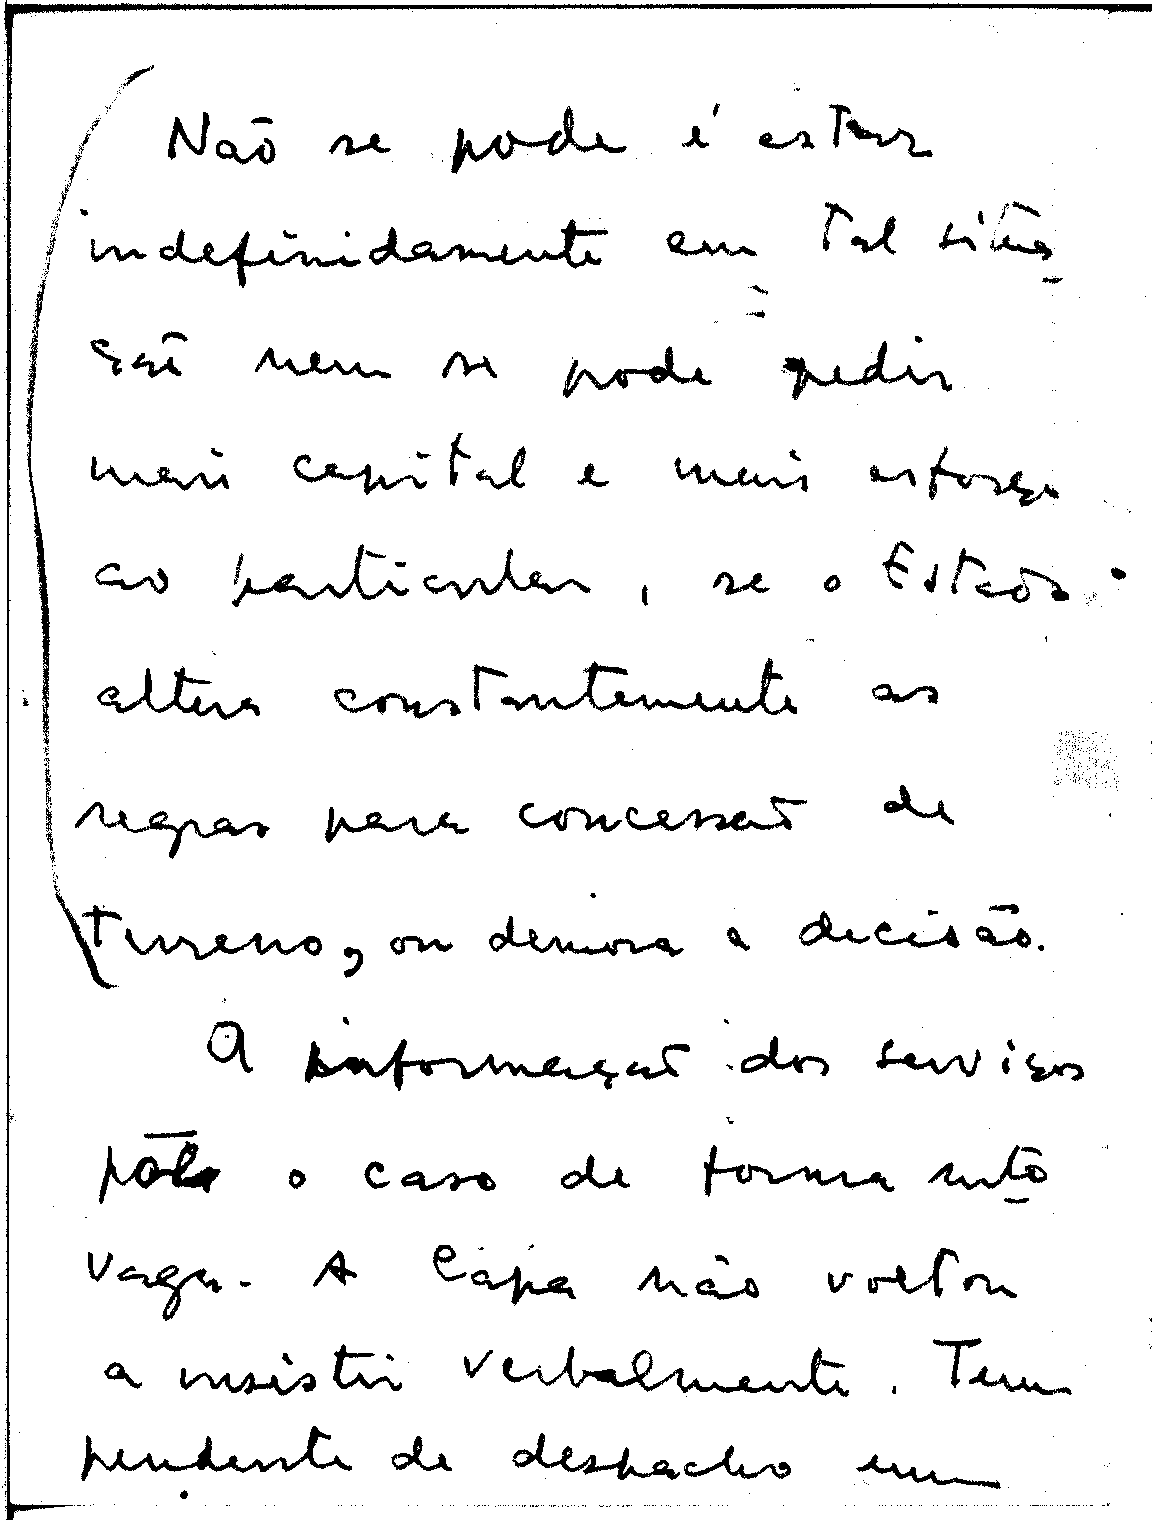 Não se pode é estar
indefinidamente em tal situa-
ção nem se pode pedir
mais capital e mais esforço
ao particular, se o Estado
altera constantemente as
regras para concessão de
terreno, ou demora a decisão.
A informação dos serviços
põe o caso de forma mto
vaga. A Capa não voltou
a insistir verbalmente. Tem
pendente de despacho um